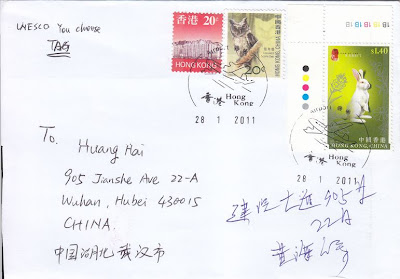 UNESCO You choose
TAG
香港 20¢
HONG KONG
50¢
$1.40
中國香港
HONG KONG, CHINA
1B 1B 1B 1B
香港 Hong Kong
28 1 2011
香港 Hong Kong
28 1 2011
To. Huang Hai
905 Jianshe Ave 22-A
Wuhan, Hubei 430015
CHINA.
中国湖北武汉市
建设大道905号
22A
黄海